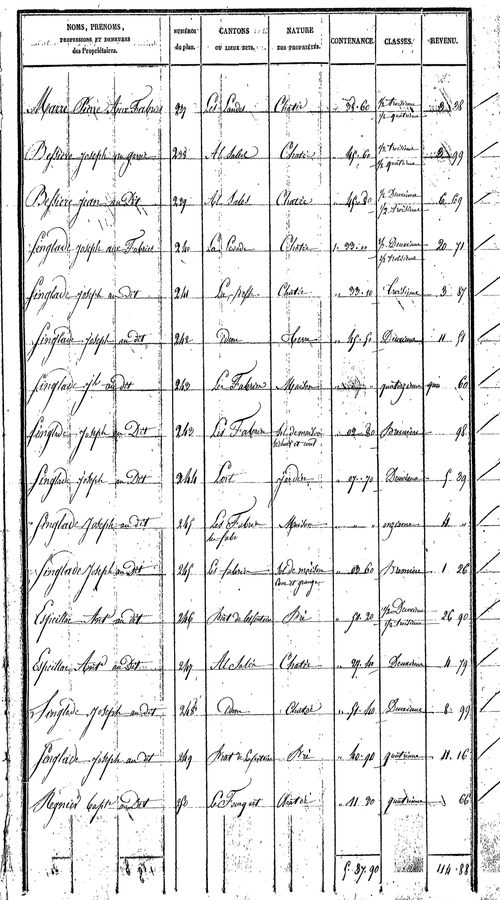 NOMS, PRENOMS, PROFESSIONS, ET DEMEURES des Propriétaires. | NUMÉROS du plan. | CANTONS OU LIEUX DITS. | NATURE DES PROPRIÉTÉS. | CONTENANCE. | CLASSES. | REVENU.
Pierre aux Fabries 237 Les Landes Chatie " 38.60 1/2 troisieme 1/2 quatrieme 3 38
Joseph 238 Al Salié Chatie " 45.60 1/2 troisieme 1/2 quatrieme 3 99
Jean au Dit 239 Al Salés Chatie " 45.80 1/2 Deuxieme 1/2 troisieme 6 69
Singlade Joseph aux Fabries 240 La Chatie 1. 33. 1/2 Deuxieme 1/2 troisieme 20 71
Singlade Joseph au dit 241 Chatie " 33.10 troisieme 3 87
Singlade Joseph au dit 242 Dom Terre " 45.50 Deuxieme 11 51
Singlade Jh au dit 243 Les Fabries Maison 60
Singlade Joseph au Dit 243 Les Fabries Sol de maison " 02.80 Premiere 98
Singlade Joseph au Dit 244 Lort Jardin " 07.70 Deuxieme 5 39
Singlade Joseph au dit 245 Les Fabries Maison " " " onzieme 4 "
Singlade Joseph au dit 245 Les fabries Sol de maison Cour et grange " 03.60 Premiere 1 26
Espeillac Ant. au dit 246 Prat de Pré " 51.20 1/2 Deuxieme 1/2 troisieme 26 90
Espeillac Ant. au Dit 247 Al Salié Chatie " 29.40 Deuxieme 4 79
Singlade Joseph au dit 248 Dom Chatie " 51.40 Deuxieme 8 99
Singlade Joseph au dit 249 Prat de Pré " 40.90 quatrieme 11.16
Regnier Bapte au Dit 250 Chatie " 11.20 quatrieme 66
5.37.90 114.88